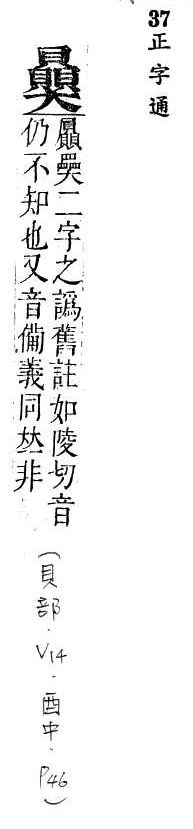 37正字通
贔奰二字之譌舊註如陵切音
仍不知也又音備義同𠀤非
(貝部·V14·酉中·P46)